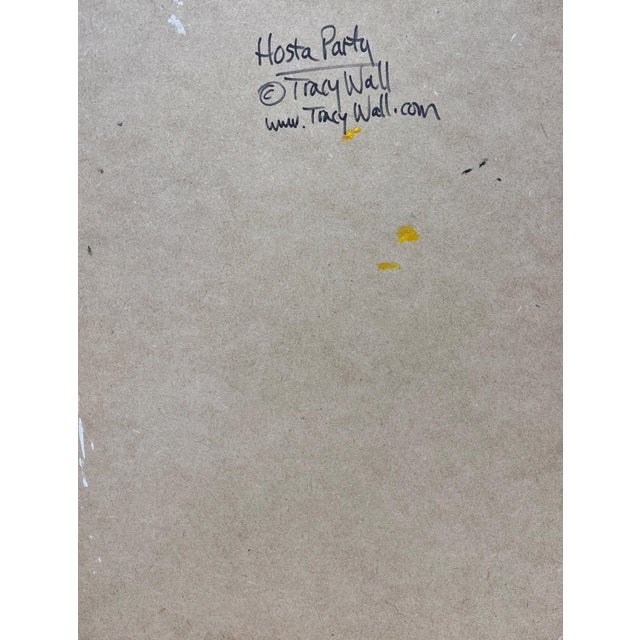 Hosta Party
© Tracy Wall
www.TracyWall.com